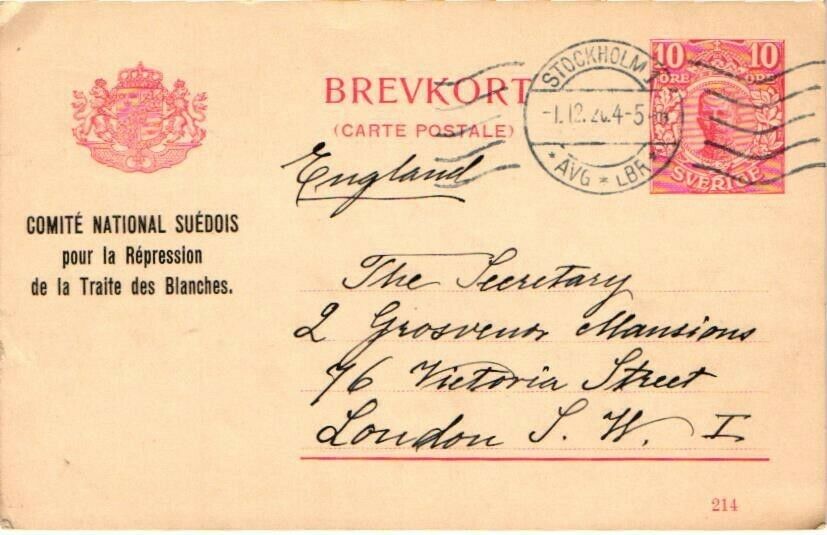 BREVKORT
(CARTE POSTALE)
STOCKHOLM
-1.12.20.4-5
* AVG * LBR *
10 10
ÖRE ÖRE
SVERIGE
England
COMITÉ NATIONAL SUÉDOIS
pour la Répression
de la Traite des Blanches.
The Secretary
2 Grosvenor Mansions
76 Victoria Street
London S. W. I
214